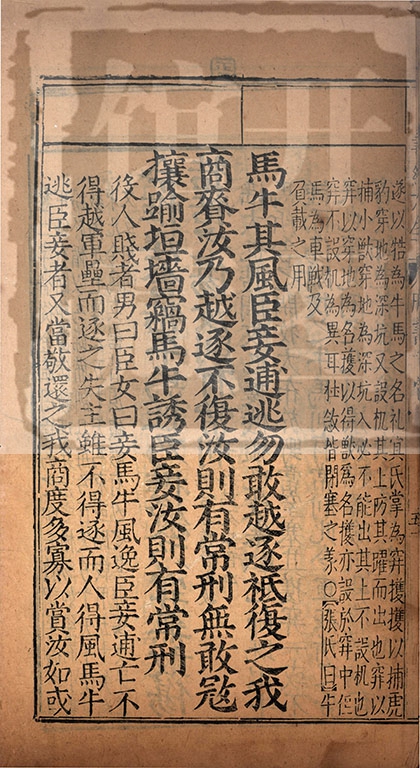 遂以牿為牛馬之名礼冥氏掌為穽擭擭以捕虎
豹穿地為深坑又設机其上防其躍而出也穽以
捕小獸穿地為深坑入必不能出其上不設机也
穽以穿地為名擭以得獸為名擭亦設於穽中但
穽不設机為異耳杜敜皆閉塞之义○張氏曰牛
馬為車戰及
負載之用
馬牛其風臣妾逋逃勿敢越逐祇復之我
商賚汝乃越逐不復汝則有常刑無敢寇
攘踰垣墻竊馬牛誘臣妾汝則有常刑
役人賤者男曰臣女曰妾馬牛風逸臣妾逋亡不
得越軍壘而逐之失主雖不得逐而人得風馬牛
逃臣妾者又當敬還之我商度多寡以賞汝如或